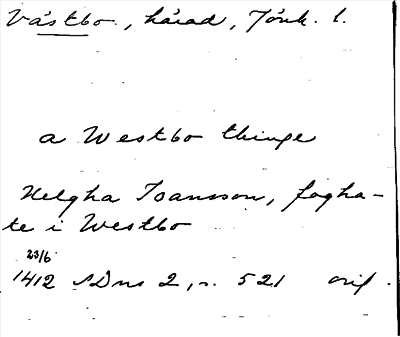 Västbo, härad, Jönk. l.
a Westbo thinge
Helgha Joansson, fogha-
te i Westbo
23/6
1412 SDns 2, s. 521 orig.